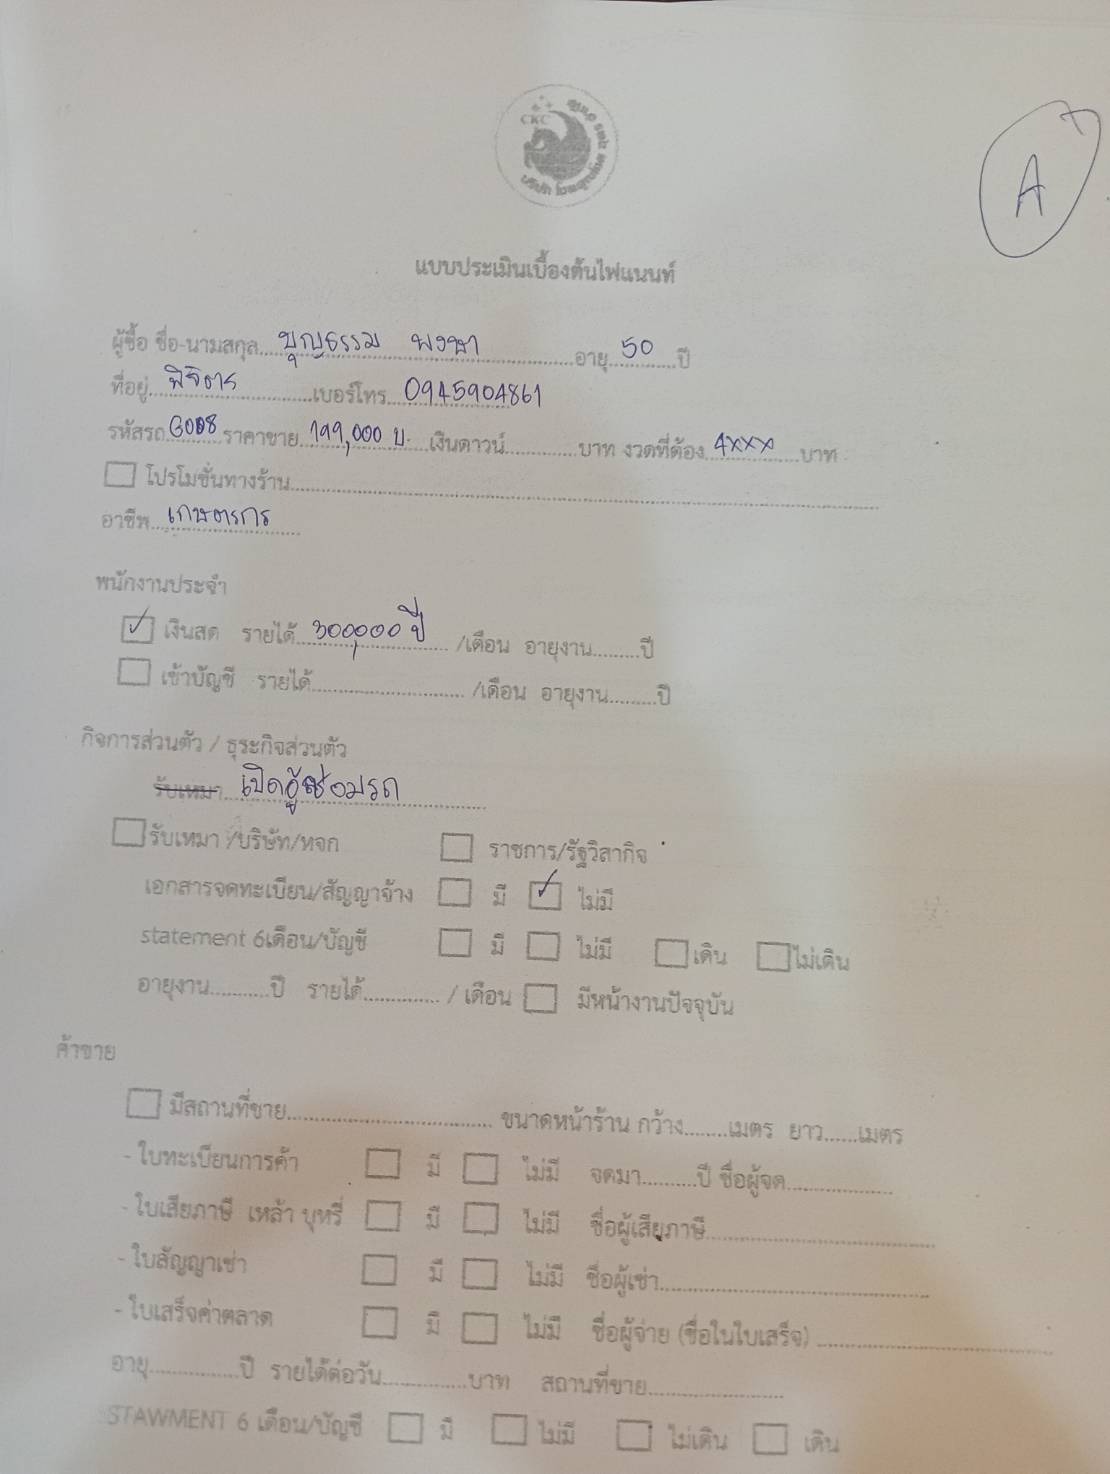 CKC
A
แบบประเมินเบื้องต้นไฟแนนท์
ผู้ซื้อ ชื่อ-นามสกุล บุญธรรม พงษา อายุ 50 ปี
ที่อยู่ พิจิตร เบอร์โทร 0945904861
รหัสรถ ราคาขาย 199,000 บ. เงินดาวน์ บาท งวดที่ต้อง 4xxx บาท
โปรโมชั่นทางร้าน
อาชีพ เกษตรกร
พนักงานประจำ
เงินสด รายได้ 300,000 ปี /เดือน อายุงาน ปี
เข้าบัญชี รายได้ /เดือน อายุงาน ปี
กิจการส่วนตัว / ธุระกิจส่วนตัว
รับเหมา เปิดอู้ซ่อมรถ
รับเหมา /บริษัท/หจก ราชการ/รัฐวิสากิจ
เอกสารจดทะเบียน/สัญญาจ้าง มี ไม่มี
statement 6เดือน/บัญชี มี ไม่มี เดิน ไม่เดิน
อายุงาน ปี รายได้ / เดือน มีหน้างานปัจจุบัน
ค้าขาย
มีสถานที่ขาย ขนาดหน้าร้าน กว้าง เมตร ยาว เมตร
- ใบทะเบียนการค้า มี ไม่มี จดมา ปี ชื่อผู้จด
- ใบเสียภาษี เหล้า บุหรี่ มี ไม่มี ชื่อผู้เสียภาษี
- ใบสัญญาเช่า มี ไม่มี ชื่อผู้เช่า
- ใบเสร็จค่าตลาด มี ไม่มี ชื่อผู้จ่าย (ชื่อในใบเสร็จ)
อายุ ปี รายได้ต่อวัน บาท สถานที่ขาย
STAWMENT 6 เดือน/บัญชี มี ไม่มี ไม่เดิน เดิน